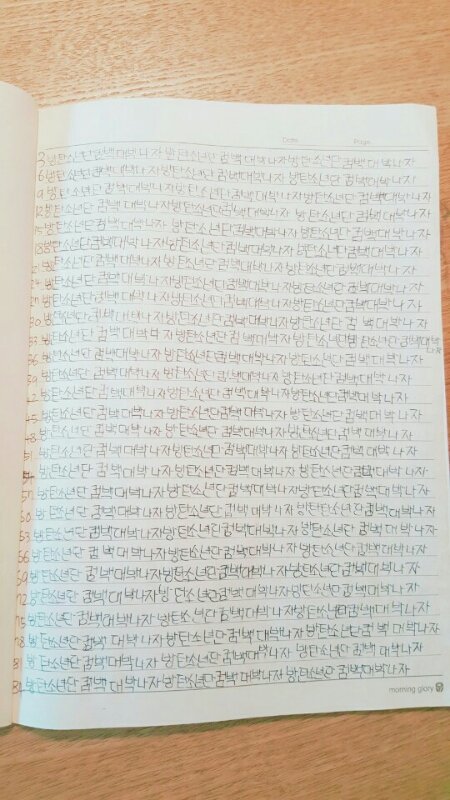 Date Page
3 방탄소년단컴백대박나자 방탄소년단 컴백 대박나자방탄소년단컴백 대박나자
6 방탄소년단컴백대박나자 방탄소년단컴백대박나자 방탄소년단컴백대박나자
9 방탄소년단 컴백대박나자방탄소년단컴백대박나자방탄소년단컴백대박나자
12 방탄소년단 컴백대박나자방탄소년단컴백대박나자 방탄소년단 컴백대박나자
15 방탄소년단 컴백대박나자 방탄소년단컴백대박나자 방탄소년단컴백대박나자
18 방탄소년단컴백대박나자 방탄소년단컴백대박나자방탄소년단컴백대박나자
21 방탄소년단 컴백대박나자방탄소년단컴백대박나자방탄소년단컴백대박나자
24 방탄소년단 컴백대박나자방탄소년단컴백대박나자방탄소년단컴백대박나자
27 방탄소년단컴백대박나자방탄소년단컴백대박나자방탄소년단컴백대박나자
30 방탄소년단 컴백대박나자방탄소년단컴백대박나자방탄소년단 컴백대박나자
33 방탄소년단 컴백대박나자 방탄소년단 컴백대박나자 방탄소년단 컴백대박나자
36 방탄소년단 컴백대박나자 방탄소년단컴백대박나자 방탄소년단 컴백대박나자
39 방탄소년단 컴백대박나자방탄소년단컴백대박나자방탄소년단컴백대박나자
42 방탄소년단 컴백대박나자방탄소년단 컴백대박나자방탄소년단컴백대박나자
45 방탄소년단 컴백대박나자방탄소년단컴백대박나자 방탄소년단컴백대박나자
48 방탄소년단 컴백대박나자 방탄소년단컴백대박나자 방탄소년단컴백대박나자
51 방탄소년단 컴백대박나자방탄소년단컴백대박나자 방탄소년단컴백대박나자
54 방탄소년단 컴백대박나자 방탄소년단컴백 대박나자 방탄소년단컴백대박나자
57 방탄소년단 컴백대박나자방탄소년단컴백대박나자방탄소년단컴백대박나자
60 방탄소년단 컴백대박나자방탄소년단컴백대박나자방탄소년단컴백 대박나자
63 방탄소년단 컴백대박나자 방탄소년단컴백대박나자방탄소년단컴백 대박나자
66 방탄소년단 컴백 대박나자방탄소년단컴백대박나자 방탄소년단컴백대박나자
69 방탄소년단 컴백대박나자방탄소년단컴백대박나자방탄소년단컴백대박나자
72 방탄소년단 컴백대박나자방탄소년단 컴백대박나자방탄소년단컴백대박나자
75 방탄소년단 컴백대박나자방탄소년단컴백대박나자 방탄소년단컴백대박나자
78 방탄소년단컴백 대박나자 방탄소년단컴백대박나자 방탄소년단컴백 대박나자
81 방탄소년단 컴백대박나자 방탄소년단컴백대박나자 방탄소년단컴백대박나자
84 방탄소년단 컴백 대박나자 방탄소년단컴백 대박나자 방탄소년단 컴백대박나자
morning glory